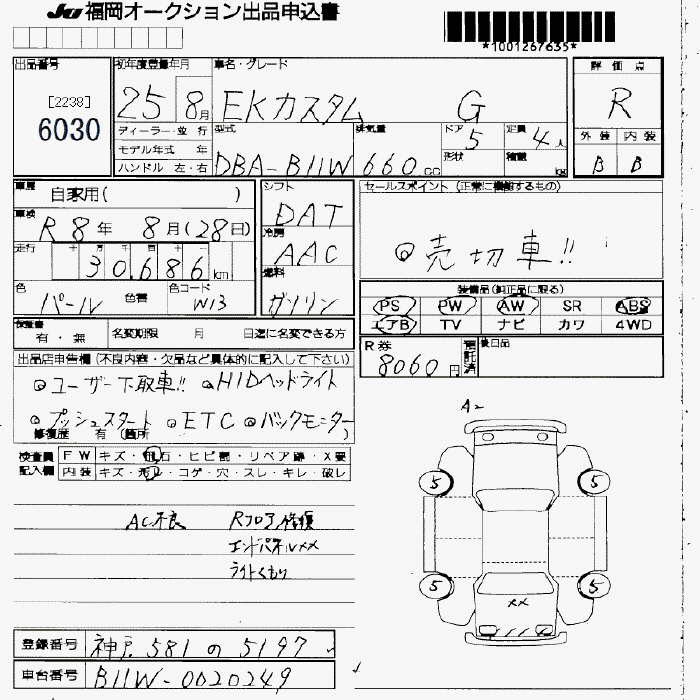 JU 福岡オークション出品申込書
*1001267635*
出品番号 初年度登録年月 車名・グレード 評価点
[2238] 6030 25 8月 EKカスタム G R
ディーラー・並行 型式 排気量 ドア 5 定員 4人 外装 内装
モデル年式 年 形状 積載 kg
ハンドル 左・右 DBA-B11W 660cc B B
車歴 自家用( ) シフト DAT セールスポイント (正常に機能するもの)
車検 R8年 8月(28日) 冷房 AAC ◎売切車!!
走行 十 万 千 百 十 30,686km 燃料 ガソリン
色 パール 色替 色コード W13
装備品(純正品に限る)
PS PW AW SR ABS
エアB TV ナビ カワ 4WD
検査書 有・無 名変期限 月 日迄に名変できる方
R券 8060円 預託済 後日品
出品店申告欄 (不良内容・欠品など具体的に記入して下さい)
◎ユーザー下取車!! ◎HIDヘッドライト
◎プッシュスタート ◎ETC ◎バックモニター
修復歴 有 (箇所
検査員 FW キズ・飛石・ヒビ割・リペア跡・X要
記入欄 内装 キズ・汚れ・コゲ・穴・スレ・キレ・破レ
A2
5 5
5 5
XX
AC不良 Rフロア修復
エンドパネルXX
ライトくもり
登録番号 神戸 581 の 5197
車台番号 B11W-0020249